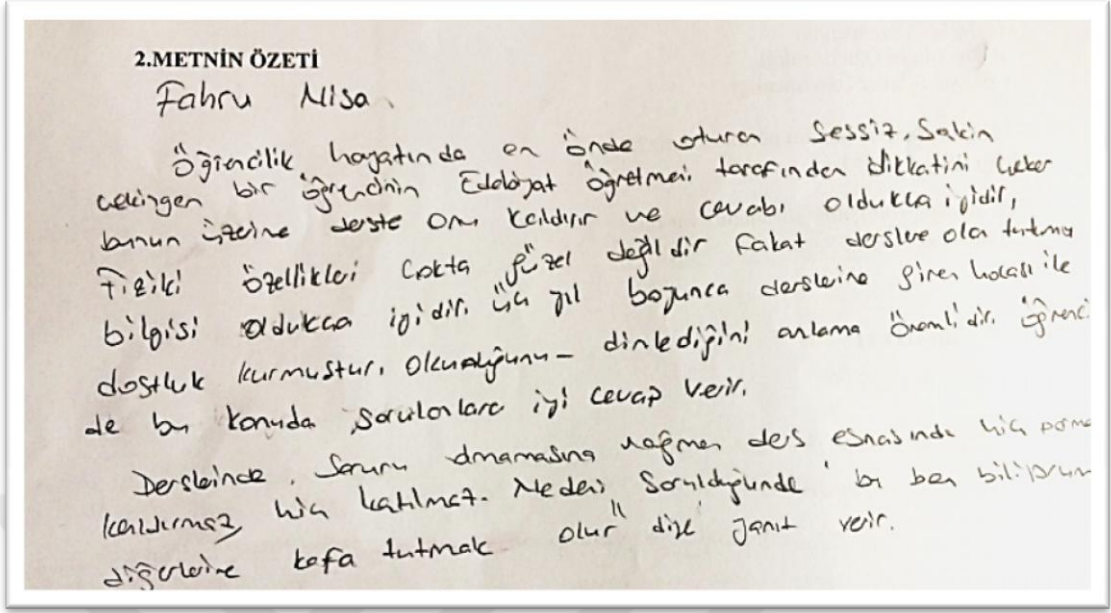 2.METNİN ÖZETİ
Fahru Nisa
Öğrencilik hayatında en önde oturan sessiz, sakin
çekingen bir öğrencinin Edebiyat öğretmeni tarafından dikkatini çeker
bunun üzerine derste onu kaldırır ve cevabı oldukça iyidir,
Fiziki özellikleri çokta güzel değildir fakat derslere olan tutumu
bilgisi oldukça iyidir. üç yıl boyunca derslerine giren hocası ile
dostluk kurmuştur. Okuduğunu - dinlediğini anlama önemlidir. öğrenci
de bu konuda sorulanlara iyi cevap verir.
Derslerinde sorunu olmamasına rağmen ders esnasında hiç parma
kaldırmaz, hiç katılmaz. Nedeni sorulduğunda "bu ben biliyorum
diğerlerine kafa tutmak olur" diye yanıt verir.